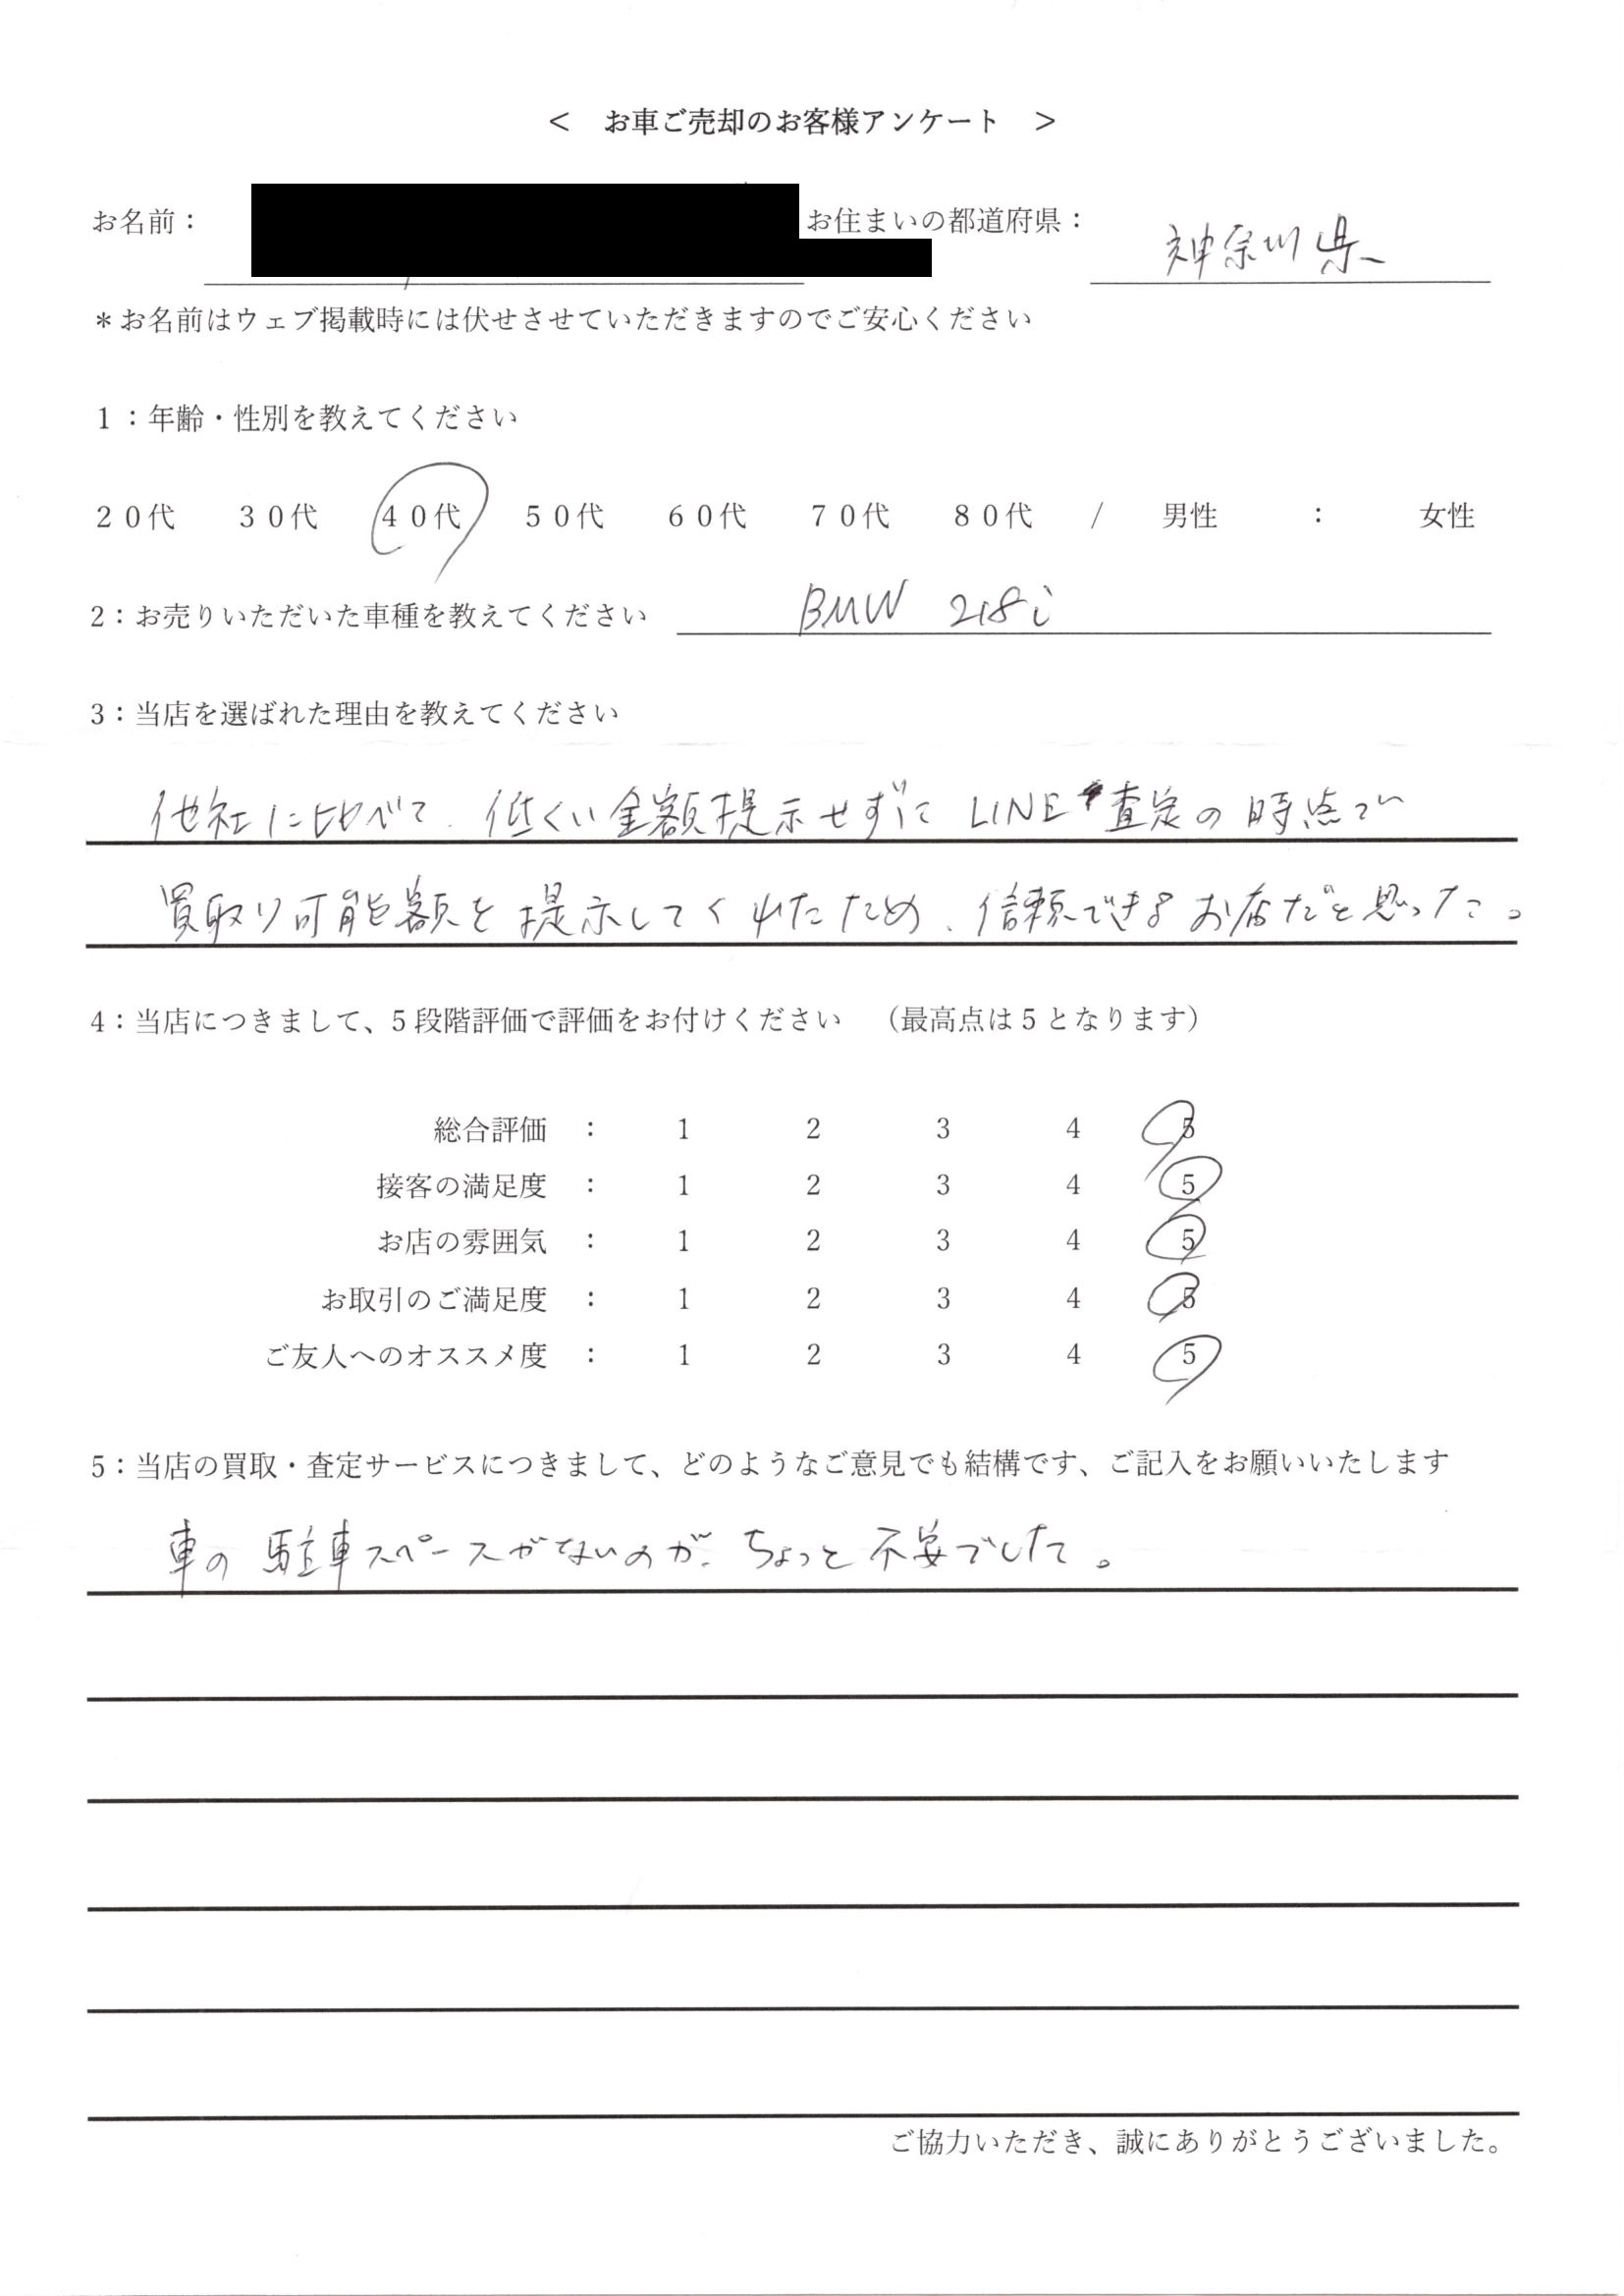 ＜　お車ご売却のお客様アンケート　＞
お名前：　お住まいの都道府県：　神奈川県
＊お名前はウェブ掲載時には伏せさせていただきますのでご安心ください
1：年齢・性別を教えてください
２０代　３０代　４０代　５０代　６０代　７０代　８０代　/　男性　：　女性
2：お売りいただいた車種を教えてください　BMW 218i
3：当店を選ばれた理由を教えてください
他社に比べて、低くい金額提示せずに LINE査定の時点で
買取り可能額を提示してくれたため、信頼できるお店だと思った。
4：当店につきまして、5段階評価で評価をお付けください　（最高点は5となります）
総合評価　：　1　2　3　4　5
接客の満足度　：　1　2　3　4　5
お店の雰囲気　：　1　2　3　4　5
お取引のご満足度　：　1　2　3　4　5
ご友人へのオススメ度　：　1　2　3　4　5
5：当店の買取・査定サービスにつきまして、どのようなご意見でも結構です、ご記入をお願いいたします
車の駐車スペースがないのが、ちょっと不安でした。
ご協力いただき、誠にありがとうございました。